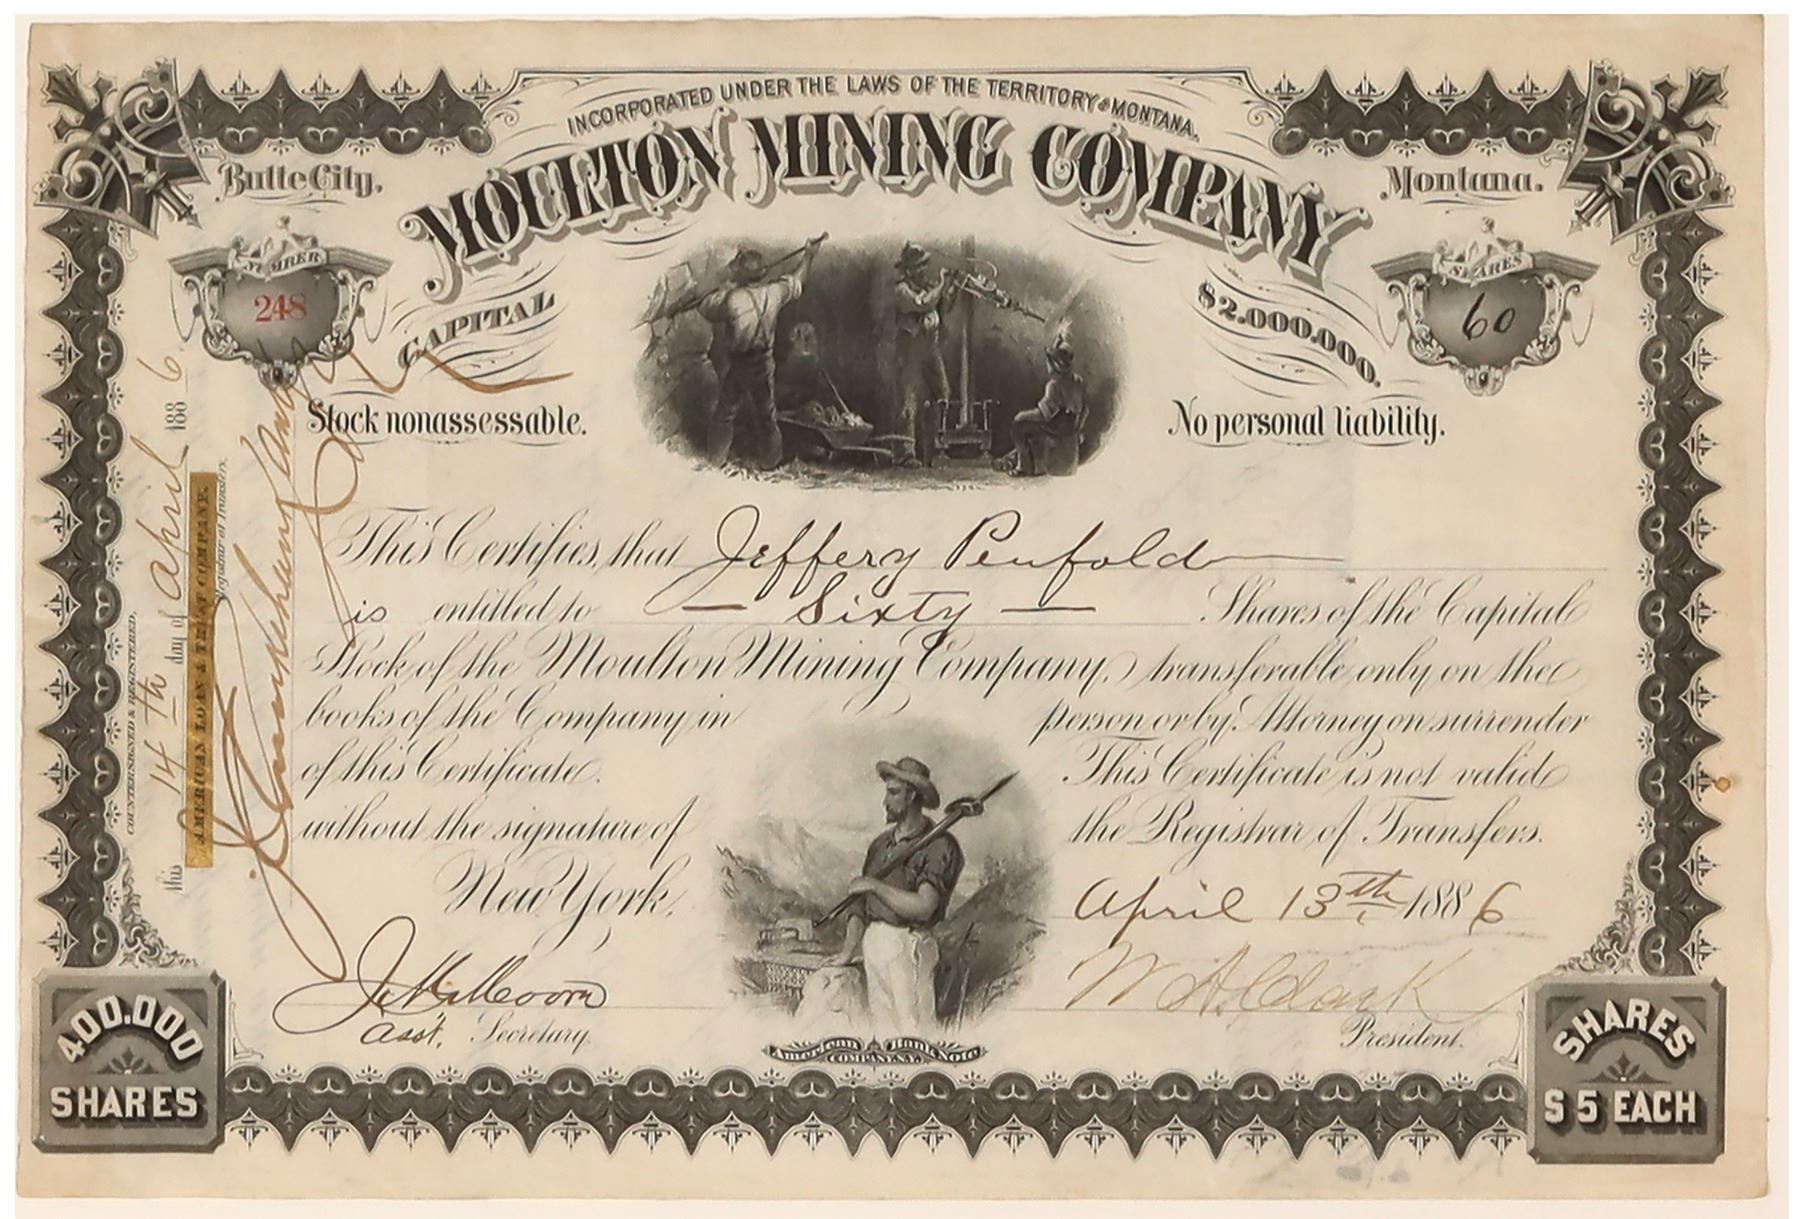 INCORPORATED UNDER THE LAWS OF THE TERRITORY OF MONTANA.
Butte City.
MOULTON MINING COMPANY
Montana.
NUMBER
248
CAPITAL
$2.000.000.
SHARES
60
Stock nonassessable.
No personal liability.
This Certifies, that Jeffery Penfold
is entitled to — Sixty — Shares of the Capital
Stock of the Moulton Mining Company, transferable only on the
books of the Company in person or by Attorney on surrender
of this Certificate. This Certificate is not valid
without the signature of the Registrar of Transfers.
New York, April 13th, 1886
Asst. Secretary.
W A Clark
President.
American Bank Note
COMPANY N.Y.
400,000
SHARES
SHARES
$5 EACH
COUNTERSIGNED & REGISTERED,
this 14th day of April 1886
AMERICAN LOAN & TRUST COMPANY.
Registrar of Transfers.